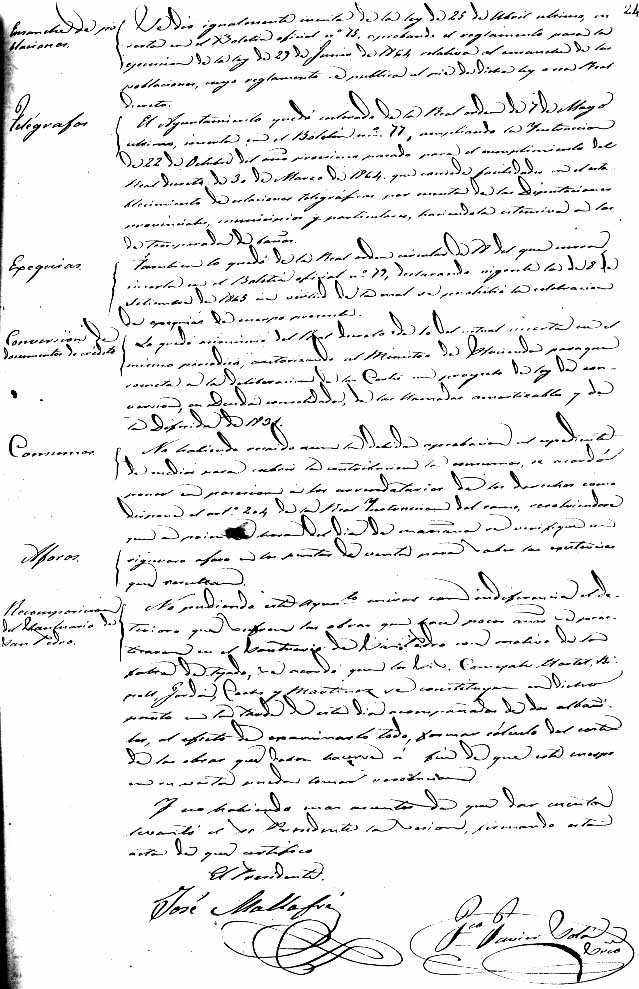 24
Ensanche de po-
blaciones.
Se dió igualmente cuenta de la ley de 25 de Abril ultimo, in-
serta en el Boletin oficial nº 75, aprobando el reglamento para la
ejecucion de la ley de 29 de Junio de 1864 relativa al ensanche de las
poblaciones, cuyo reglamento se publica al pie de dicha ley o sea Real
decreto.
Telégrafos
El Ayuntamiento quedó enterado de la Real orden de 7 de Mayo
ultimo, inserta en el Boletin nº 77, ampliando la Instruccion
de 22 de Octubre del año proximo pasado para el cumplimiento del
Real decreto de 30 de Marzo de 1864, que concede facultades en el esta-
blecimiento de estaciones telegráficas por cuenta de las Diputaciones
provinciales, municipios y particulares, haciendola estensiva a las
de temporada de baños.
Exequias.
Tambien lo quedó de la Real orden circular de del que cursa
inserta en el Boletin oficial nº 79, declarando vigente la de 8 de
Setiembre de 1865 en virtud de la cual se prohibió la celebracion
de exequias de cuerpo presente.
Conversión de
documentos de crédito
Lo quedó asimismo del Real decreto de 10 del actual inserto en el
mismo periodico, autorizando al Ministro de Hacienda para que
someta a la deliberacion de las Cortes un proyecto de ley de con-
version, en Deuda consolidada, de las llamadas amortizable y de
la Diferida de 1831.
Consumos.
No habiendo recaido aun la debida aprobacion al expediente
de medios para cubrir la contribucion de consumos, se acordó
poner en posesion a los arrendatarios de los derechos como
dispone el artº 204 de la Real Instruccion del ramo, resolviendose
que a primera hora del dia de mañana se verifique un
Aforos.
riguroso aforo en los puntos de venta para saber las existencias
que resultan.
Recomposicion
del Santuario de
San Pedro.
No pudiendo este Ayunto mirar con indiferencia el de-
terioro que sufren las obras que hace pocos años se prac-
ticaron en el Santuario de San Pedro con motivo de la
falta de tejado, se acordó que los Sres. Concejales Martet, Ri-
poll, Jordi, Cacho y Martinez se constituyan en dicho
punto en la tarde de este dia acompañados de dos albañi-
les, al efecto de examinarlo todo, formar cálculo del coste
de las obras que deben hacerse á fin de que este cuerpo
en su vista pueda tomar resolucion.
Y no habiendo mas asuntos de que dar cuenta
levantó el Sr Presidente la sesion, firmando esta
acta de que certifico
El Presidente.
José Mallafré
Fco Javier
Srio